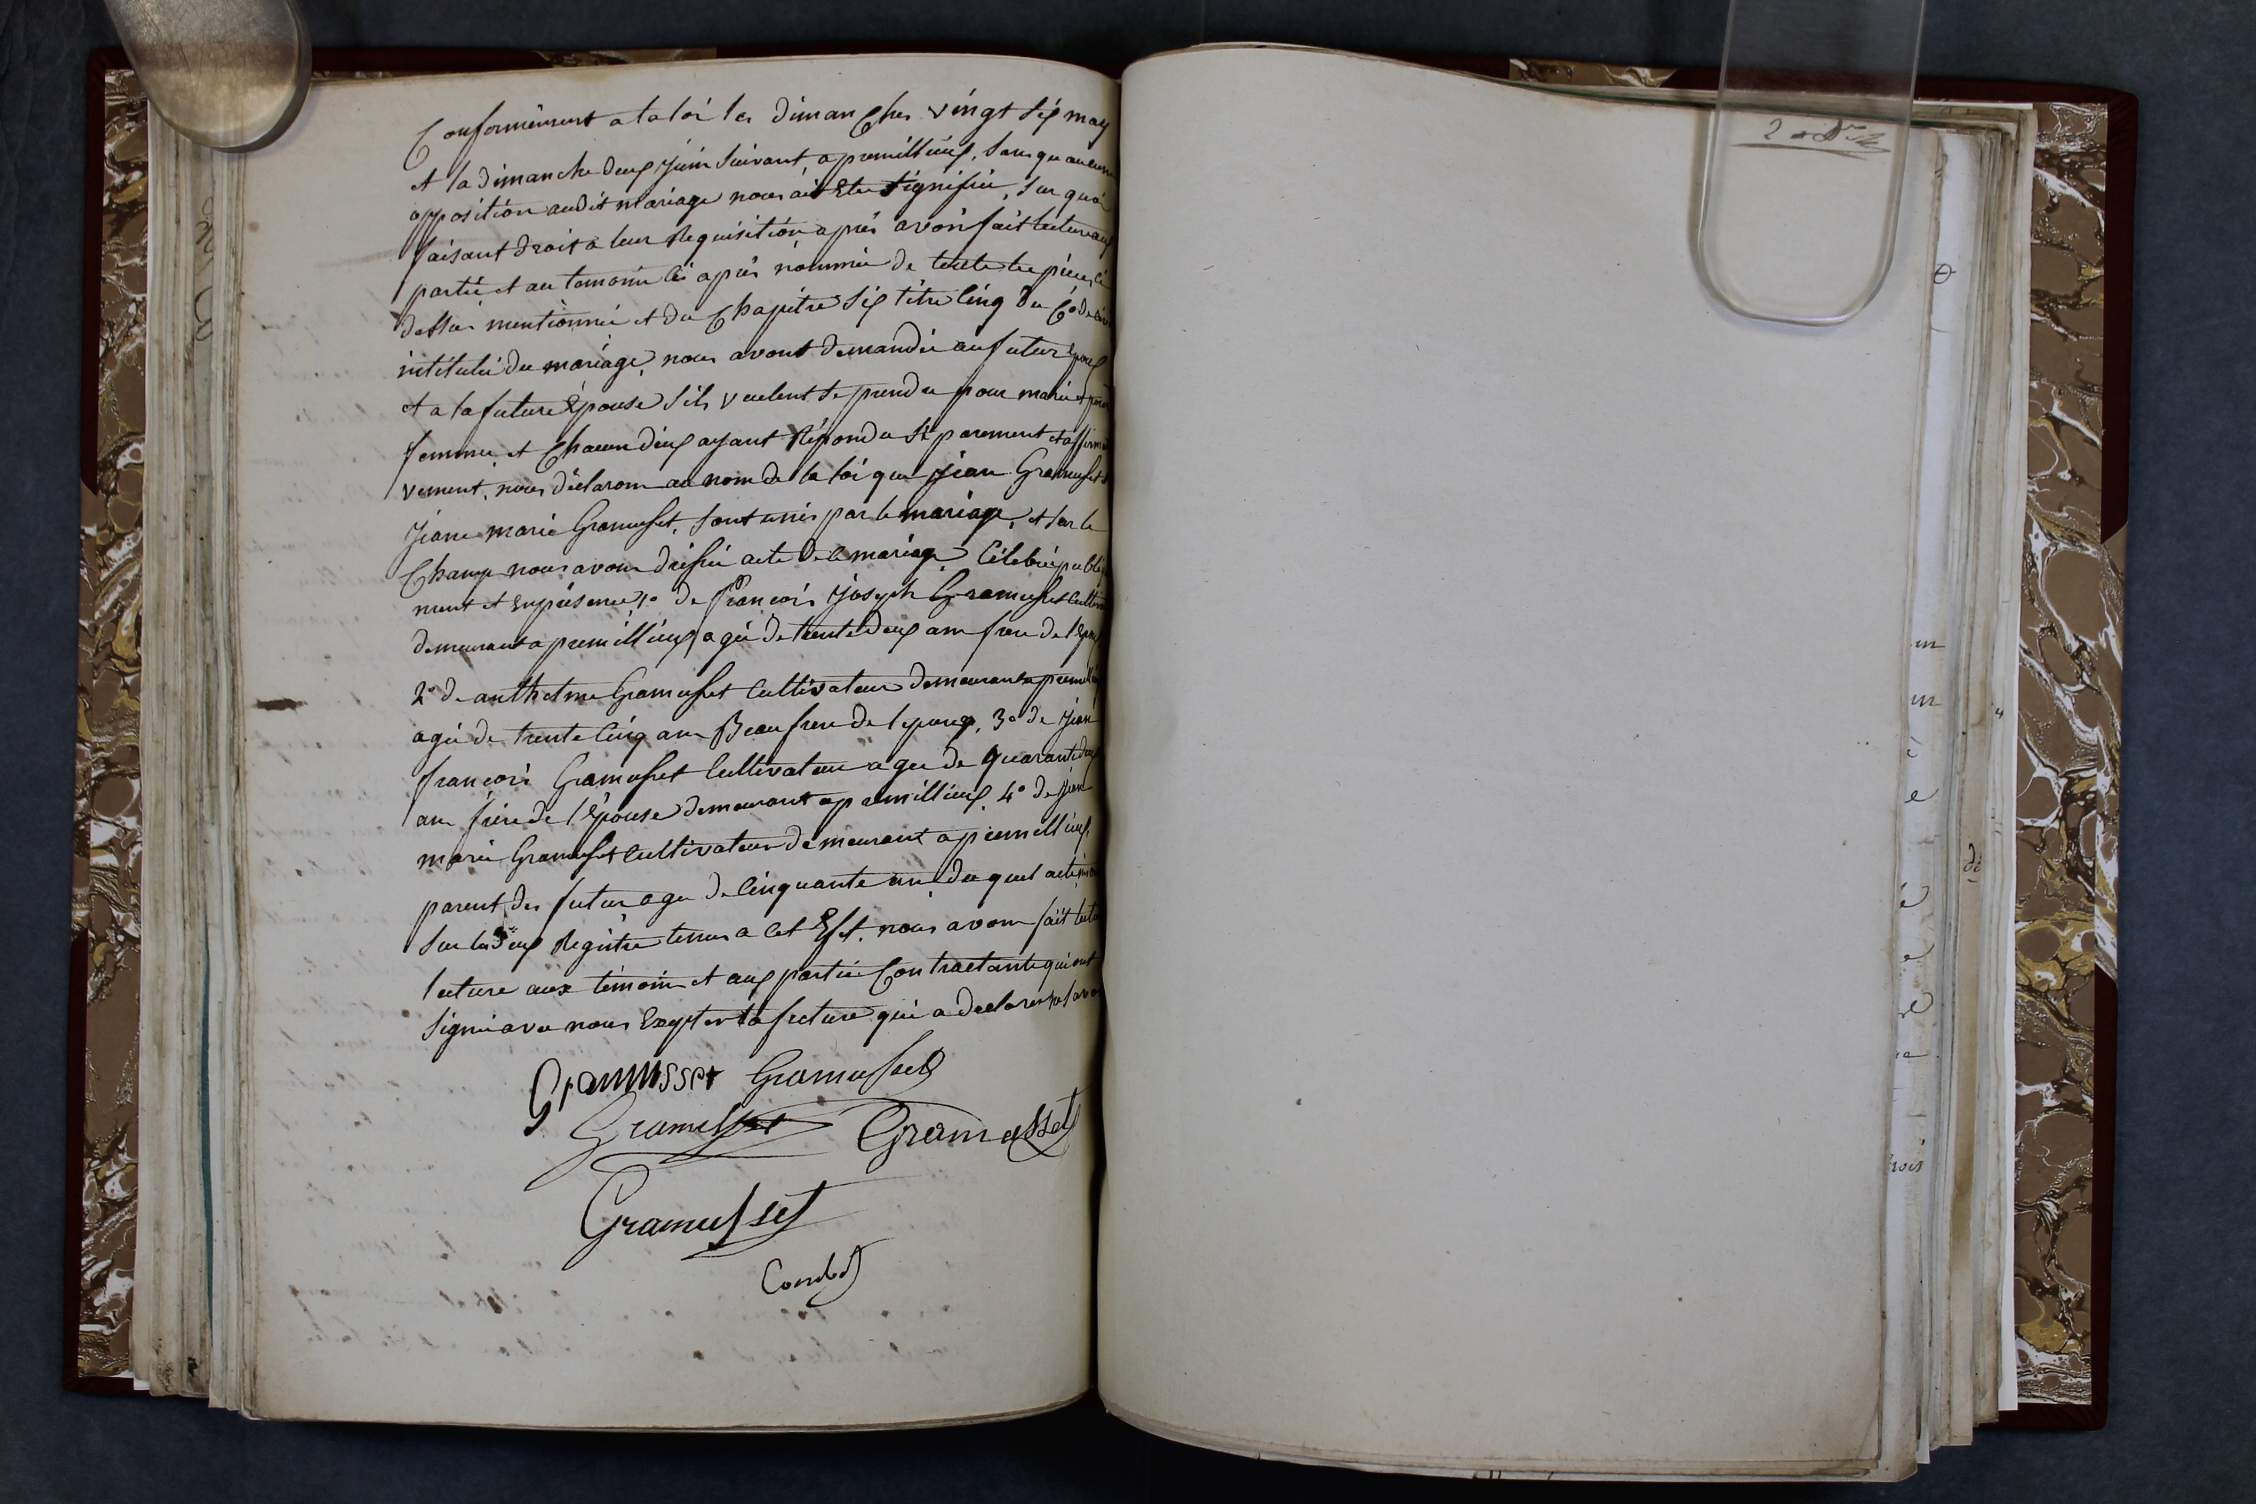 Conformément a la loi les dimanches vingt six may
et la dimanche deux juin suivant a premillieux, sans qu aucune
opposition audit mariage nous ait Eté signifiée, sur quoi
faisant droit a leur Requisition, après avoir fait lecture aux
partie et au temoin ci après nommée de toute les pieces ci
dessus mentionnée et du Chapitre six titre cinq du Code civil
intitulé du mariage, nous avont demandée au futur Epoux
et a la future Epouse s'ils veulent se prendre pour marie et pour
femme, et chacun d'eux ayant Répondu séparement et affirmati
vement, nous déclarons au nom de la loi que Jean Gramusset et
Jeane marie Gramusset, sont unis par le mariage, et sur le
Champ nous avons dressée acte de ce mariage, Célébrée publique
ment et En présence 1° de François Joseph Gramusset Cultivateur
demeurant a premillieux agée de trente deux ans frere de l'Epoux
2° de anthelme Gramusset Cultivateur demeurant a premillieux
agée de trente cinq ans Beau frere de l'epoux, 3° de Jean
françois Gramusset Cultivateur agée de quarante deux
ans frère de l'Epouse demeurant a premillieux, 4° de Jean
marie Gramusset Cultivateur demeurant a premillieux,
parent des futur agée de cinquante un, du quel acte
sur les deux Registre tenus a cet Effet, nous avons fait
lecture aux témoin et aux partie Contractante qui ont
signée avec nous Excepter la future qui a declarer ne savoir
Gramusset Gramusset
Gramusset Gramusset
Gramusset
Combet